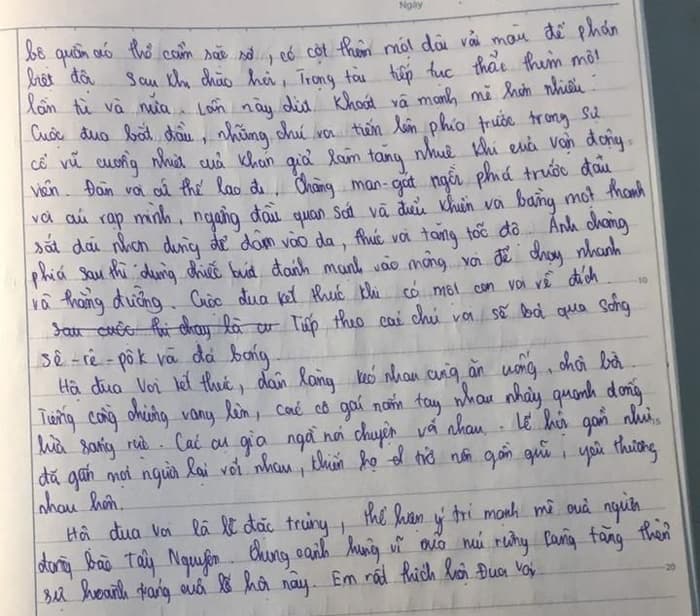 Ngày
bộ quần áo thổ cẩm sặc sỡ, có cột thêm một dải vải màu để phân
biệt đội. Sau khi chào hỏi, Trọng tài tiếp tục thắc thêm một
lần tù và nữa. Lần này dứt khoát và mạnh mẽ hơn nhiều.
Cuộc đua bắt đầu, những chú voi tiến lên phía trước trong sự
cổ vũ cuồng nhiệt của khán giả làm tăng nhuệ khí của vận động
viên. Đàn voi cứ thế lao đi. Chàng man-gát ngồi phía trước đầu
voi cúi rạp mình, ngẩng đầu quan sát và điều khiển voi bằng một thanh
sắt dài nhọn dùng để đâm vào da, thúc voi tăng tốc độ. Anh chàng
phía sau thì dùng chiếc búa đánh mạnh vào mông voi để chạy nhanh
và thẳng đường. Cuộc đua kết thúc khi có một con voi về đích.
Sau cuộc thi chạy là cu Tiếp theo các chú voi sẽ bơi qua sông
Sê-rê-pôk và đá bóng.
Hội đua voi kết thúc, dân làng kéo nhau cùng ăn uống, chơi bời.
Tiếng cồng chiêng vang lên, các cô gái nắm tay nhau nhảy quanh đống
lửa sáng rực. Các cụ già ngồi nói chuyện với nhau. Lễ hội gần như
đã gắn mọi người lại với nhau, khiến họ trở nên gần gũi, yêu thương
nhau hơn.
Hội đua voi là lễ đặc trưng, thể hiện ý trí mạnh mẽ của người
đồng bào Tây Nguyên. Khung cảnh hùng vĩ của núi rừng càng tăng thêm
sự hoành tráng của lễ hội này. Em rất thích hội Đua voi
10
20